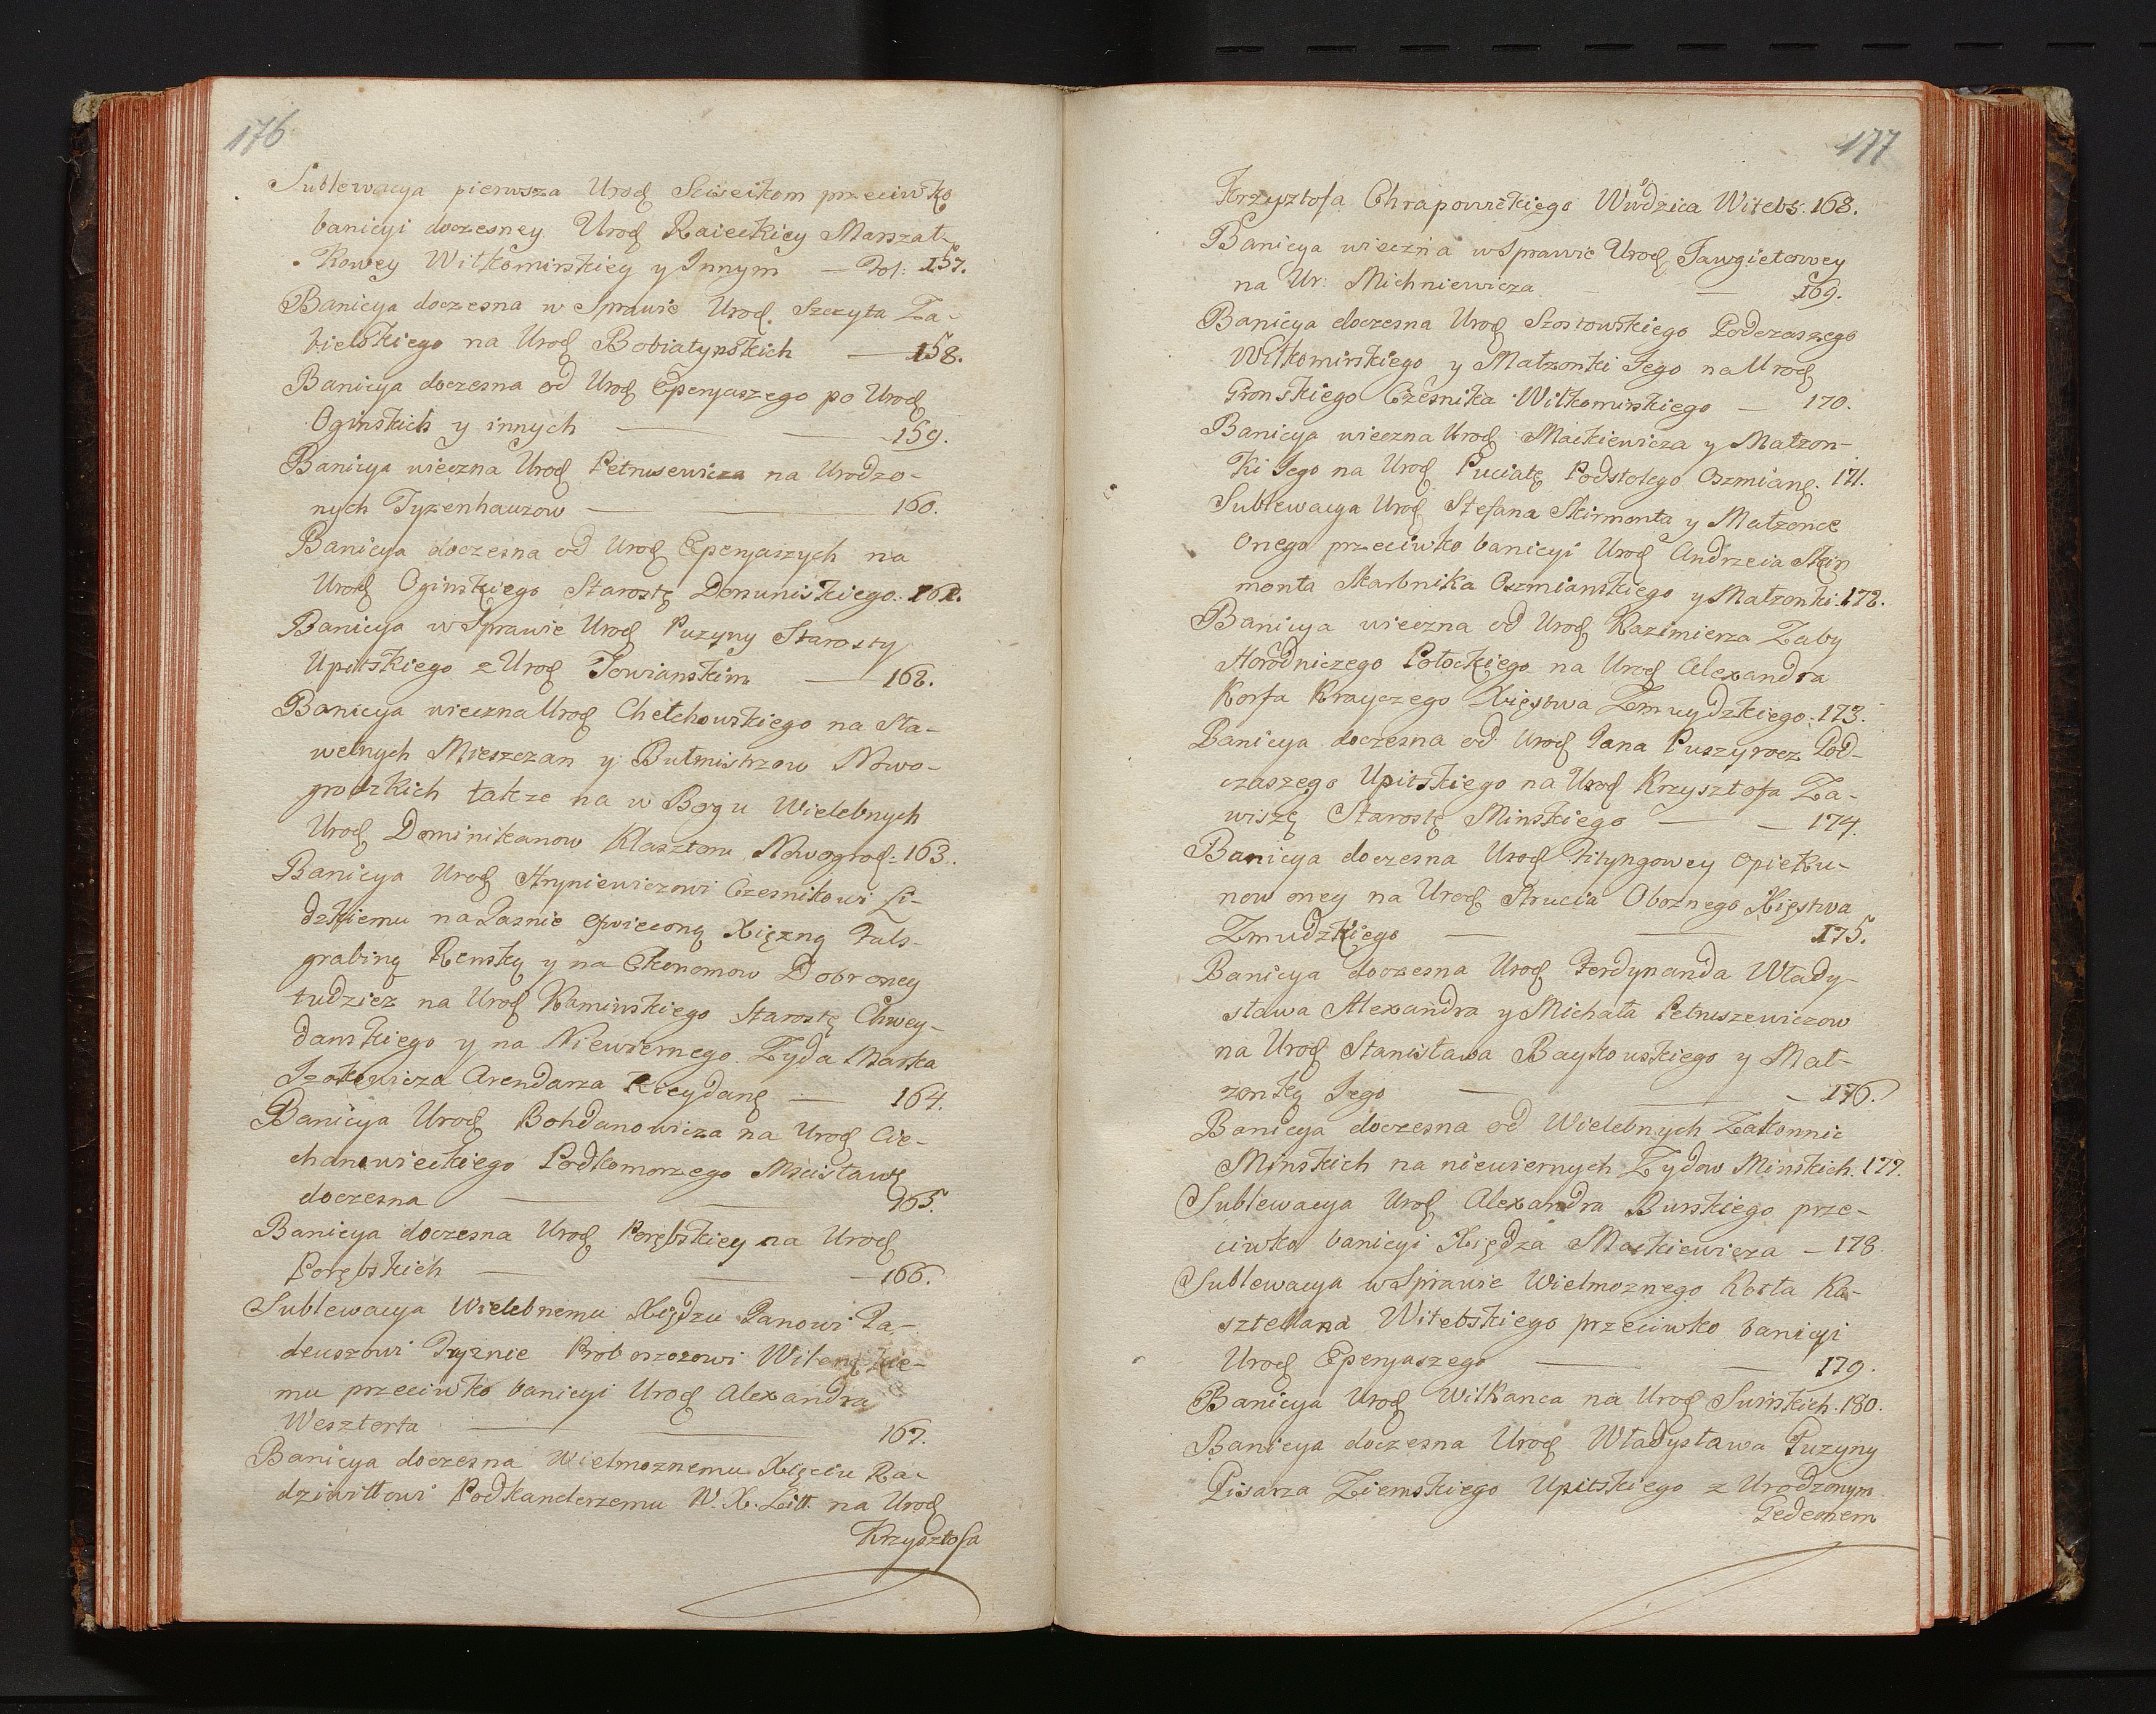 176
Sublewacya pierwsza Urod Sciseikom przeciwko
banicyi doczesney Urod Raieckiey Marszał-
kowey Wiłkomirskiey y Innym — Fol: 157.
Banicya doczesna w Sprawie Urod. Szczyta Za-
bielskiego na Urod Bobiatynskich — 158.
Banicya doczesna od Urod Eperyaszego po Urod
Oginskich y innych — — 159.
Banicya wieczna Urod Petrusewicza na Urodzo-
nych Tyzenhauzow — — 160.
Banicya doczesna od Urod Eperyaszych na
Urod Oginskiego Starostę Dorsuniskiego. 161.
Banicya w Sprawie Urod Puzyny Starosty
Upitskiego z Urod Towianskim — 162.
Banicya wieczna Urod Chełchowskiego na Sła-
wetnych Mieszczan y Burmistrzow Nowo-
grodzkich takze na w Bogu Wielebnych
Urod Dominikanow Klasztoru Nowogrod: 163.
Banicya Urod Hryniewiczowi Czesnikowi Li-
dzkiemu na Jasnie Oswieconą Xięzną Fals-
grabiną Renską y na Ekonomow Dobr oney
tudziez na Urod Kaminskiego Starostę Chwey-
danskiego y na Niewiernego Zyda Marka
Izakowicza Arendarza Kieydang — 164.
Banicya Urod Bohdanowicza na Urod Cie-
chanowieckiego Podkomorzego Mscisławg
doczesna — — 165.
Banicya doczesna Urod Porębskiey na Urod
Porębskich — — 166.
Sublewacya Wielebnemu Xiędzu Panowi Ta-
deuszowi Pryznie Proboszczowi Witeng skie-
mu przeciwko banicyi Urod Alexandra
Wesztorta — — 167.
Banicya doczesna Wielmoznemu Xięciu Ra-
dziwiłłowi Podkanclerzemu W. X. Litt. na Urod
Krzysztofa
177
Krzysztofa Chrapowickiego Wwdzica Witebs. 168.
Banicya wieczna w Sprawie Urod Jawgiełowey
na Ur: Michniewicza — — 169.
Banicya doczesna Urod Szostowskiego Podczaszego
Wiłkomirskiego y Małzonki Jego na Urod
Gronskiego Czesnika Wiłkomirskiego — 170.
Banicya wieczna Urod Mackiewicza y Małzon-
ki Jego na Urod Puciatę Podstolego Oszmiang. 171.
Sublewacya Urod Stefana Skirmonta y Małzonce
onego przeciwko banicyi Urod Andrzeia Skir
monta Skarbnika Oszmianskiego y Małzonki. 172.
Banicya wieczna od Urod Kazimierza Zaby
Horodniczego Połockiego na Urod Alexandra
Korfa Krayczego Xięstwa Zmuydzkiego. 173.
Banicya doczesna od Urod Jana Puszyrocz Pod-
czaszego Upitskiego na Urod Krzysztofa Za-
wiszę Starostę Minskiego — — 174.
Banicya doczesna Urod Fityngowey Opieku-
now oney na Urod Strucia Oboznego Xięstwa
Zmudzkiego — — 175.
Banicya doczesna Urod Ferdynanda Włady-
sława Alexandra y Michała Petruszewiczow
na Urod Stanisława Baykowskiego y Mał-
zonkę Jego — — 176.
Banicya doczesna od Wielebnych Zakonnic
Minskich na niewiernych Zydow Minskich. 177.
Sublewacya Urod Alexandra Burskiego prze-
ciwko banicyi Xiędza Mackiewicza — 178.
Sublewacya w Sprawie Wielmoznego Kosła Ka-
sztellana Witebskiego przeciwko banicyi
Urod Eperyaszego — — 179.
Banicya Urod Wilkanca na Urod Sumskich. 180.
Banicya doczesna Urod Władysława Puzyny
Pisarza Ziemskiego Upitskiego z Urodzonym
Gedeonem